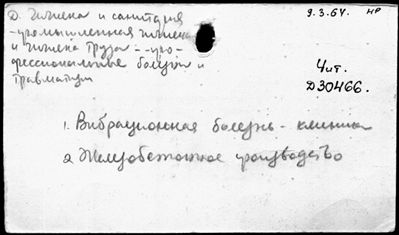 Д. Гигиена и санитария
9.3.64. НР
- промышленная гигиена
и гигиена труда - про-
фессиональные болезни и
травматизм
Чит.
Д30466.
1. Вибрационная болезнь - клиника
2. Железобетонное производство